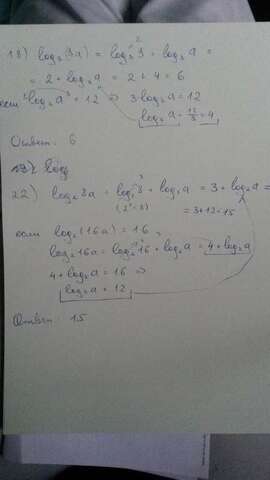 18) log₂(9a) = log₂ 3² · log₂a =
= 2 + log₂a = 2 + 4 = 6
если log₂a³ = 12 ⇒ 3·log₂a = 12
log₂a = 12/3 = 4
Ответ: 6
22) log₂ 8a = log₂ 8³ + log₂a = 3 + log₂a =
(2³ = 8) = 3+12 = 15
если log₂(16a) = 16,
log₂16a = log₂16⁴ + log₂a = 4 + log₂a
4 + log₂a = 16 ⇒
log₂a = 12
Ответ: 15